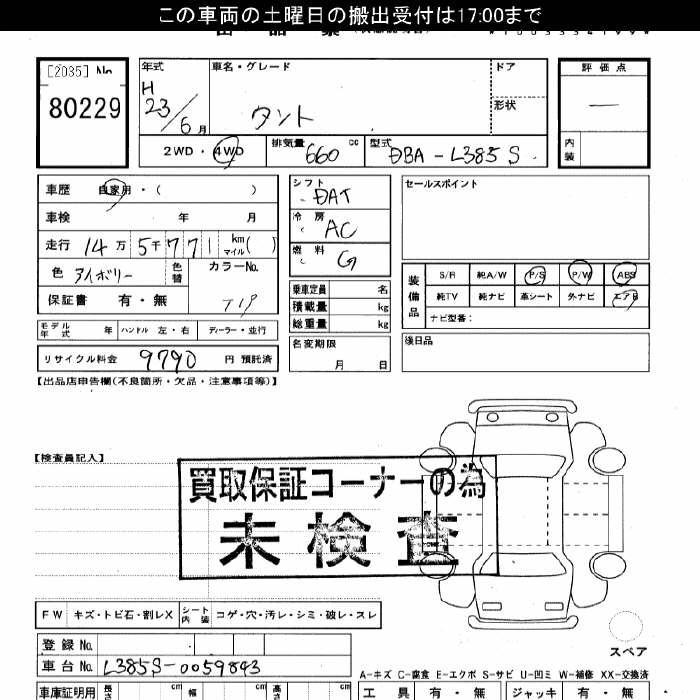 この車両の土曜日の搬出受付は17:00まで
[2035] No
80229
年式 車名・グレード ドア 評価点
H 23/6月 タント 形状 —
2WD・4WD 排気量 660 cc 型式 DBA-L385S 内装
車歴 自家用・( )
車検 年 月
走行 14万5千771 km マイル( )
色 アイボリー 色替 カラーNo. T19
保証書 有・無
モデル年式 年 ハンドル 左・右 ディーラー・並行
リサイクル料金 9790 円 預託済
シフト DAT
冷房 AC
燃料 G
乗車定員 名
積載量 kg
総重量 kg
名変期限
月 日
セールスポイント
装備品 S/R 純A/W P/S P/W ABS
純TV 純ナビ 革シート 外ナビ エアB
ナビ型番:
後日品
【出品店申告欄(不良箇所・欠品・注意事項等)】
【検査員記入】
買取保証コーナーの為
未検査
FW キズ・トビ石・割レX シート内装 コゲ・穴・汚レ・シミ・破レ・スレ
スペア
登録 No.
車台 No. L385S-0059843
A-キズ C-腐食 E-エクボ S-サビ U-凹ミ W-補修 XX-交換済
車庫証明用 長さ cm 幅 cm 高さ cm 工具 有・無 ジャッキ 有・無